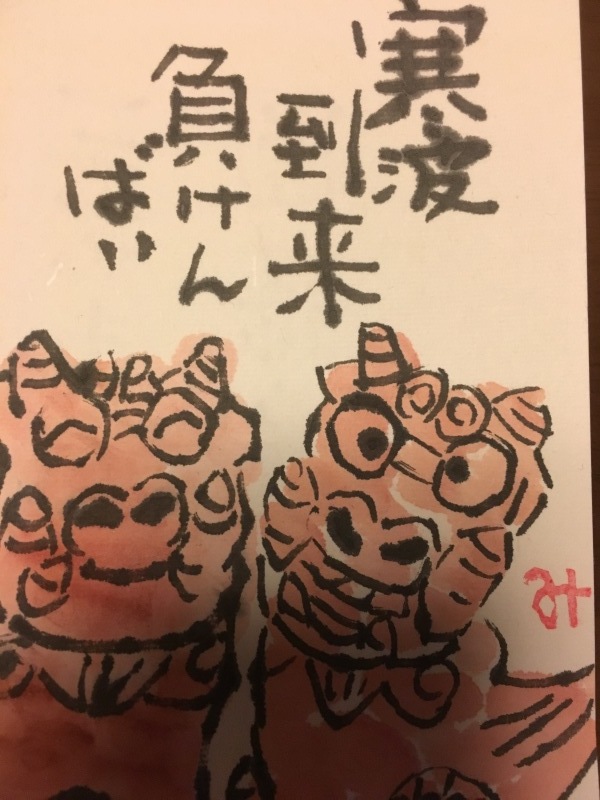 寒波
到来
負けん
ばい
み